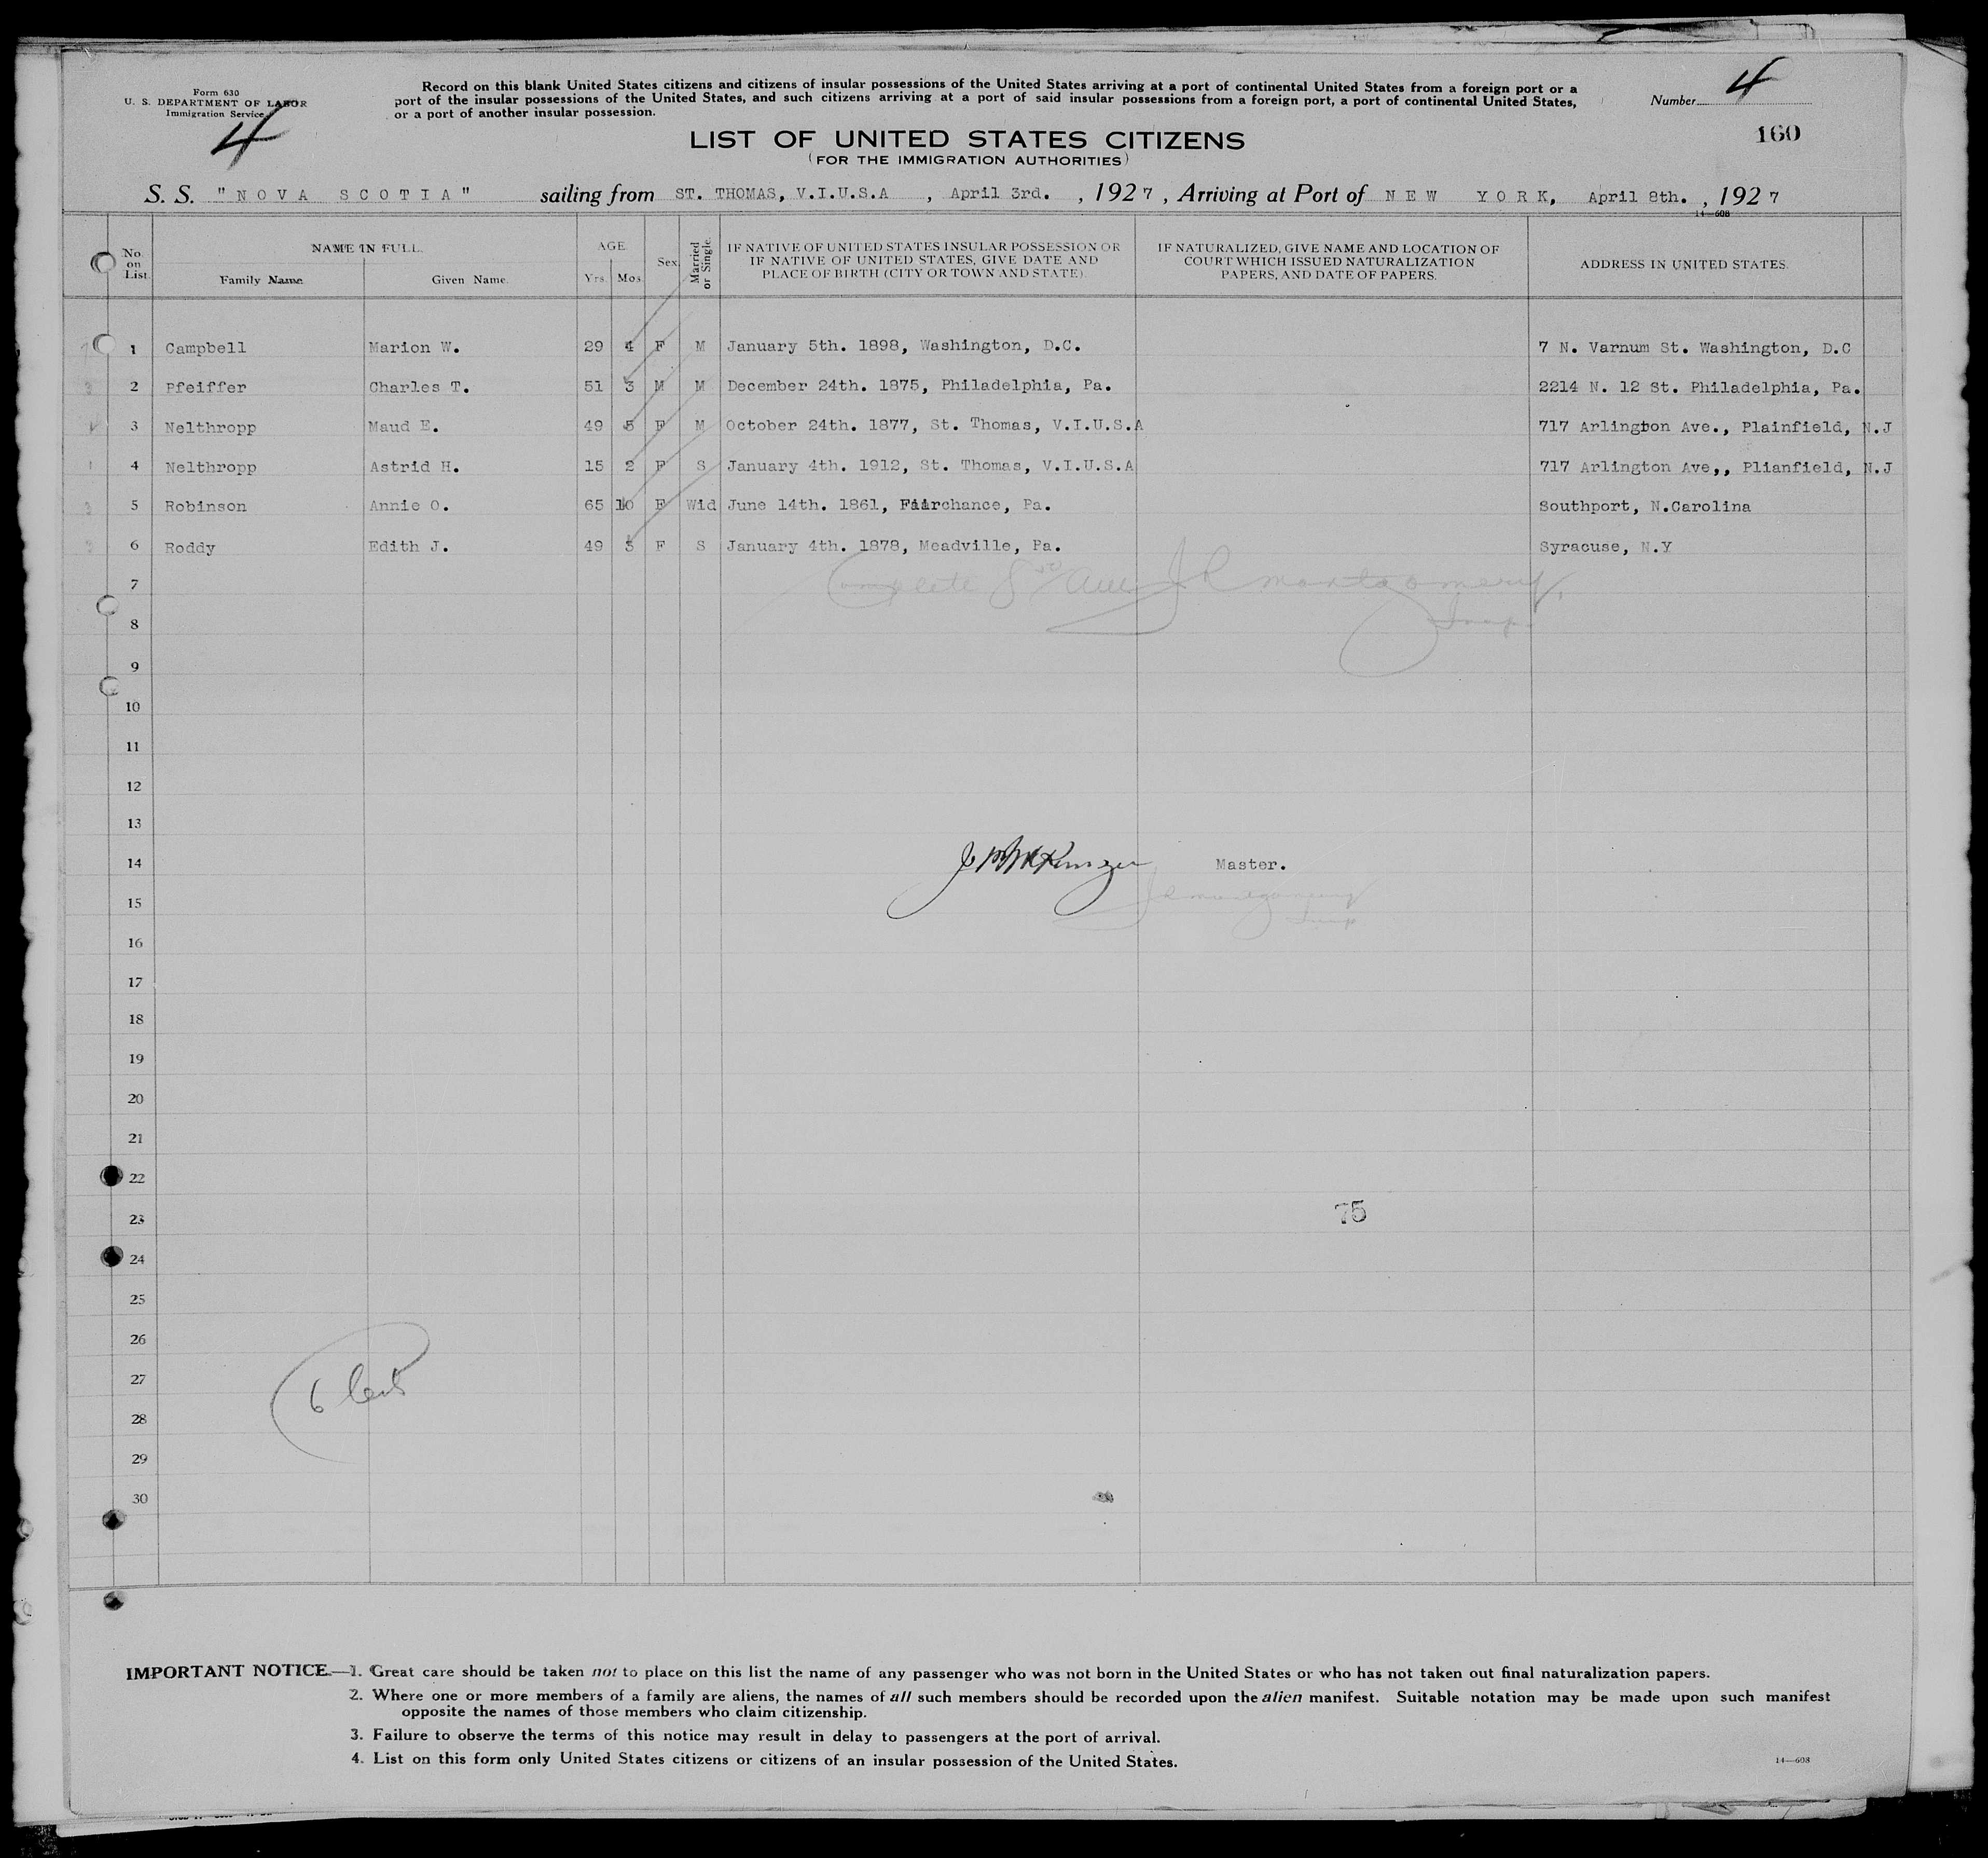 Form 630
U. S. DEPARTMENT OF LABOR
Immigration Service
4
Record on this blank United States citizens and citizens of insular possessions of the United States arriving at a port of continental United States from a foreign port or a
port of the insular possessions of the United States, and such citizens arriving at a port of said insular possessions from a foreign port, a port of continental United States,
or a port of another insular possession.
Number 4
160
LIST OF UNITED STATES CITIZENS
(FOR THE IMMIGRATION AUTHORITIES)
S. S. "NOVA SCOTIA" sailing from ST. THOMAS, V.I.U.S.A , April 3rd. , 1927 , Arriving at Port of NEW YORK, April 8th. , 1927
14—608
No. on List. NAME IN FULL. Family Name. Given Name. AGE. Yrs. Mos. Sex. Married or Single. IF NATIVE OF UNITED STATES INSULAR POSSESSION OR IF NATIVE OF UNITED STATES, GIVE DATE AND PLACE OF BIRTH (CITY OR TOWN AND STATE). IF NATURALIZED, GIVE NAME AND LOCATION OF COURT WHICH ISSUED NATURALIZATION PAPERS, AND DATE OF PAPERS. ADDRESS IN UNITED STATES.
1 Campbell Marion W. 29 4 F M January 5th. 1898, Washington, D.C. 7 N. Varnum St. Washington, D.C
2 Pfeiffer Charles T. 51 3 M M December 24th. 1875, Philadelphia, Pa. 2214 N. 12 St. Philadelphia, Pa.
3 Nelthropp Maud E. 49 5 F M October 24th. 1877, St. Thomas, V.I.U.S.A 717 Arlington Ave., Plainfield, N.J
4 Nelthropp Astrid H. 15 2 F S January 4th. 1912, St. Thomas, V.I.U.S.A 717 Arlington Ave,, Plianfield, N.J
5 Robinson Annie O. 65 10 F Wid June 14th. 1861, Fairchance, Pa. Southport, N.Carolina
6 Roddy Edith J. 49 3 F S January 4th. 1878, Meadville, Pa. Syracuse, N.Y
7 Complete J R Montgomery
8 Insp.
9
10
11
12
13
14 Master.
15 J R Montgomery
Insp
16
17
18
19
20
21
22
23 75
24
25
26
27 6
28
29
30
IMPORTANT NOTICE.—1. Great care should be taken not to place on this list the name of any passenger who was not born in the United States or who has not taken out final naturalization papers.
2. Where one or more members of a family are aliens, the names of all such members should be recorded upon the alien manifest. Suitable notation may be made upon such manifest
opposite the names of those members who claim citizenship.
3. Failure to observe the terms of this notice may result in delay to passengers at the port of arrival.
4. List on this form only United States citizens or citizens of an insular possession of the United States.
14—608